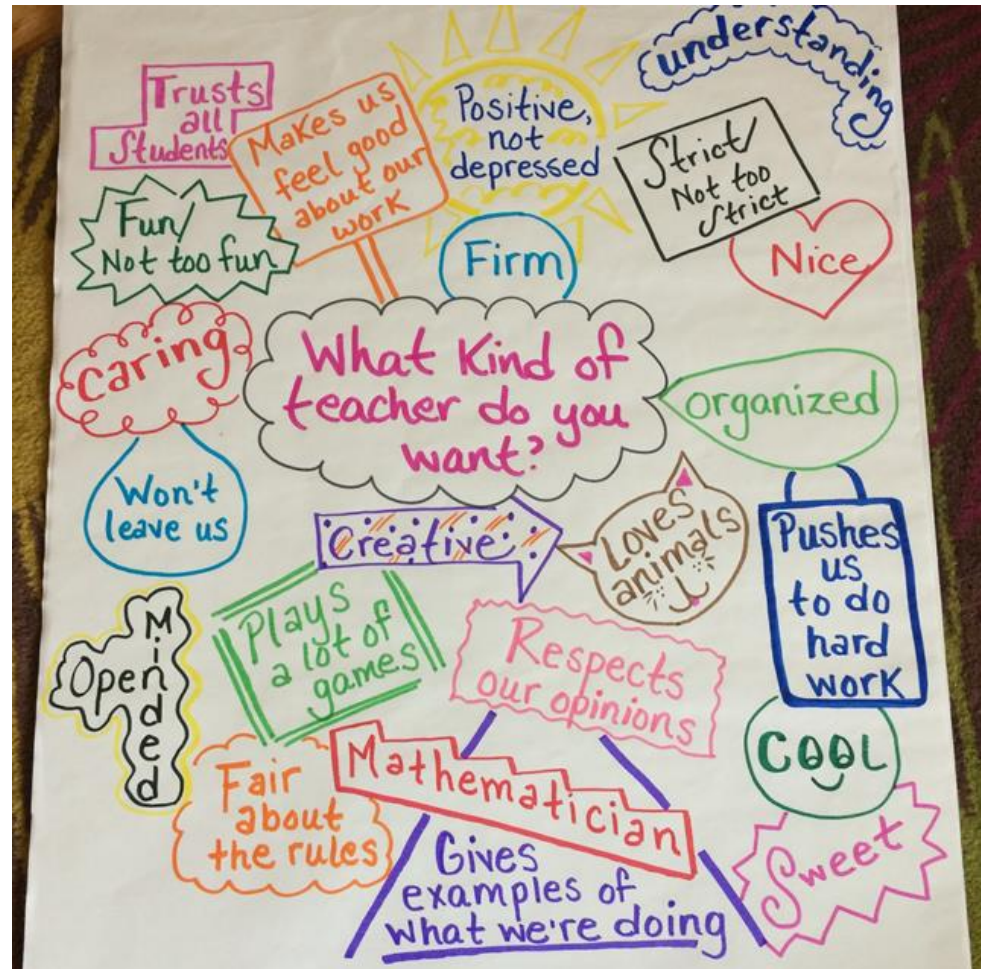 understanding
Trusts
all
Students
Makes us
feel good
about our
work
Positive,
not
depressed
Strict/
Not too
Strict
Fun/
Not too fun
Firm
Nice
caring
What Kind of
teacher do you
want?
organized
Won't
leave us
Creative
Loves
animals
Pushes
us
to do
hard
work
Open
Minded
Plays
a lot of
games
Respects
our opinions
COOL
Fair
about
the rules
Mathematician
Sweet
Gives
examples of
what we're doing